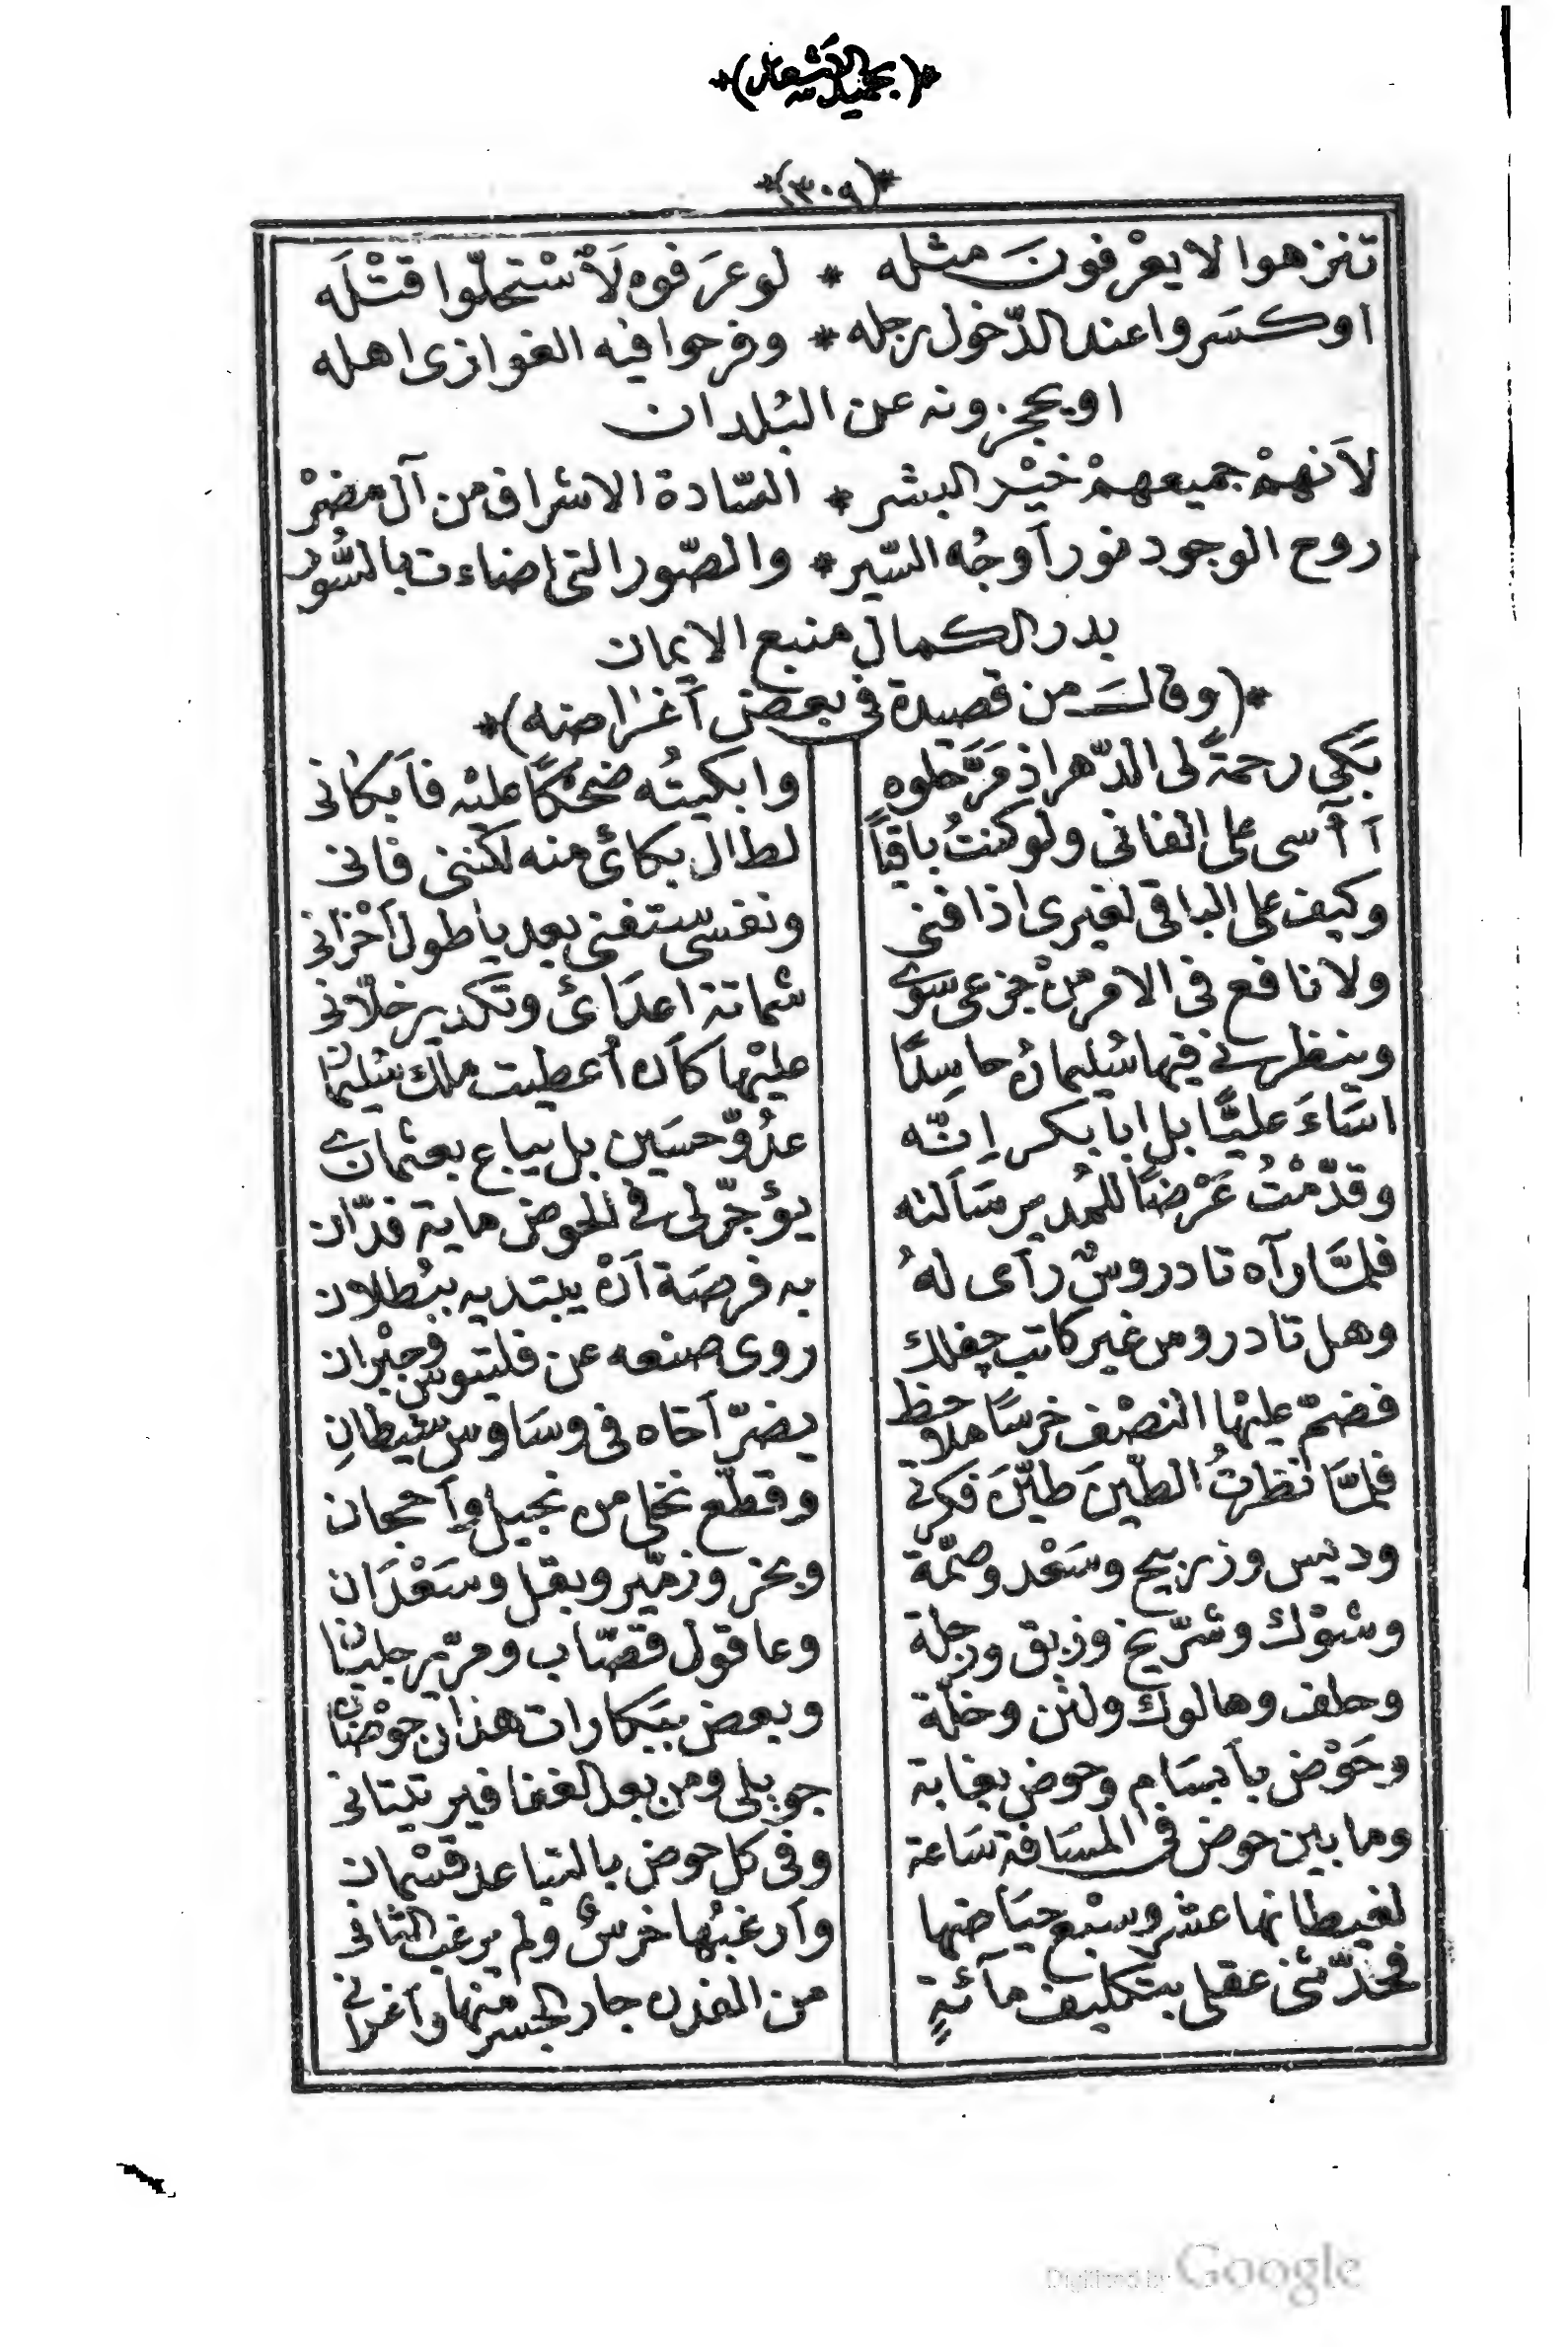 *(بجميل الاشعار)*
*(٣٠٩)*
تنزهوا لا يعْرفونَ مثله * لو عرَفوه لَاْستحلّوا قتْلَه
او كسَروا عند الدّخول رجله * وفرحوا فيه الغوازى اهله
او يحجزونه عن البُلدان
لاَنهمْ جميعهمْ خيْر البشر * السّادة الاشراف من آل مضرْ
روح الوجود نور اَوجُه السّير * والصّور التى اضاءت بالسُّور
بدر الكمال منبع الايمان
*(وقالَ من قصيدة فى بعض اَغراضه)*
بَكى رحمةً لى الدّهر اذ مَرَّ حلوه وابكيتُه ضحْكًا عليْه فاَبكانى
اَ اَآسى على الفانى ولو كنتُ باقيًا لطال بكائ منه لكننى فانى
وكيف على الباقى لغيرى اذا فنى ونفسى ستفنى بعد يا طول اَحْزانى
ولا نافع فى الامر منْ جزعى سوى شماتة اعدَائ وتكدير خلّانى
وينظرنى فيها سُليمانُ حاسِدًا عليْها كاَن اُعطيت ملك سُليمان
اسَاءَ عليًّا بل ابا بكر اِنّه عدُوّ حسَين بل يباع بعثمان
وقدّمْتُ عَرْضًا للمُدير سَاَلته يؤجّر لى فى الحوض ماية فدّان
فلمَّا رآه تادروسٌ رآى لهُ به فرصَة اَنْ يبتديه ببُطلان
وهل تادروس غير كاتب جفلك روى صنعه عن فلتيوس وجبْران
فضمّ عليْها النصْف خرسًا ملاحظ يضرّ اَخاه فى وسَاوس شيطانِ
فلمَّا نظرتُ الطّينَ طيّنَ فكرتى وقطّع نخلى من نجيل واَحجان
وديس وزربيح وسَعْد وصمّة وبخز وزمّير وبقل وسَعْدَان
وشوْك وشرّيخ وزيق ورجلة وعاقول قصّاب ومرّير جلبان
وحلف وهالوك ولبْن وخلّة وبعض ببَكارات هذان حوْضان
وحَوْض باَبسَام وحوض بغابة جويلى ومن بعد الغفا فير تيتانى
وما بين حوض فى المسَافة سَاعة وفى كل حوض بالتباعد قسْمان
لغيطانها عشر وسبْع حيَاضها واَرغبُها خرسٌ ولم يرغب الثانى
فحدّثنى عقلى بتكليف مآئةٍ من الفدن جار الجسر منها واَغرانى
Digitized by Google